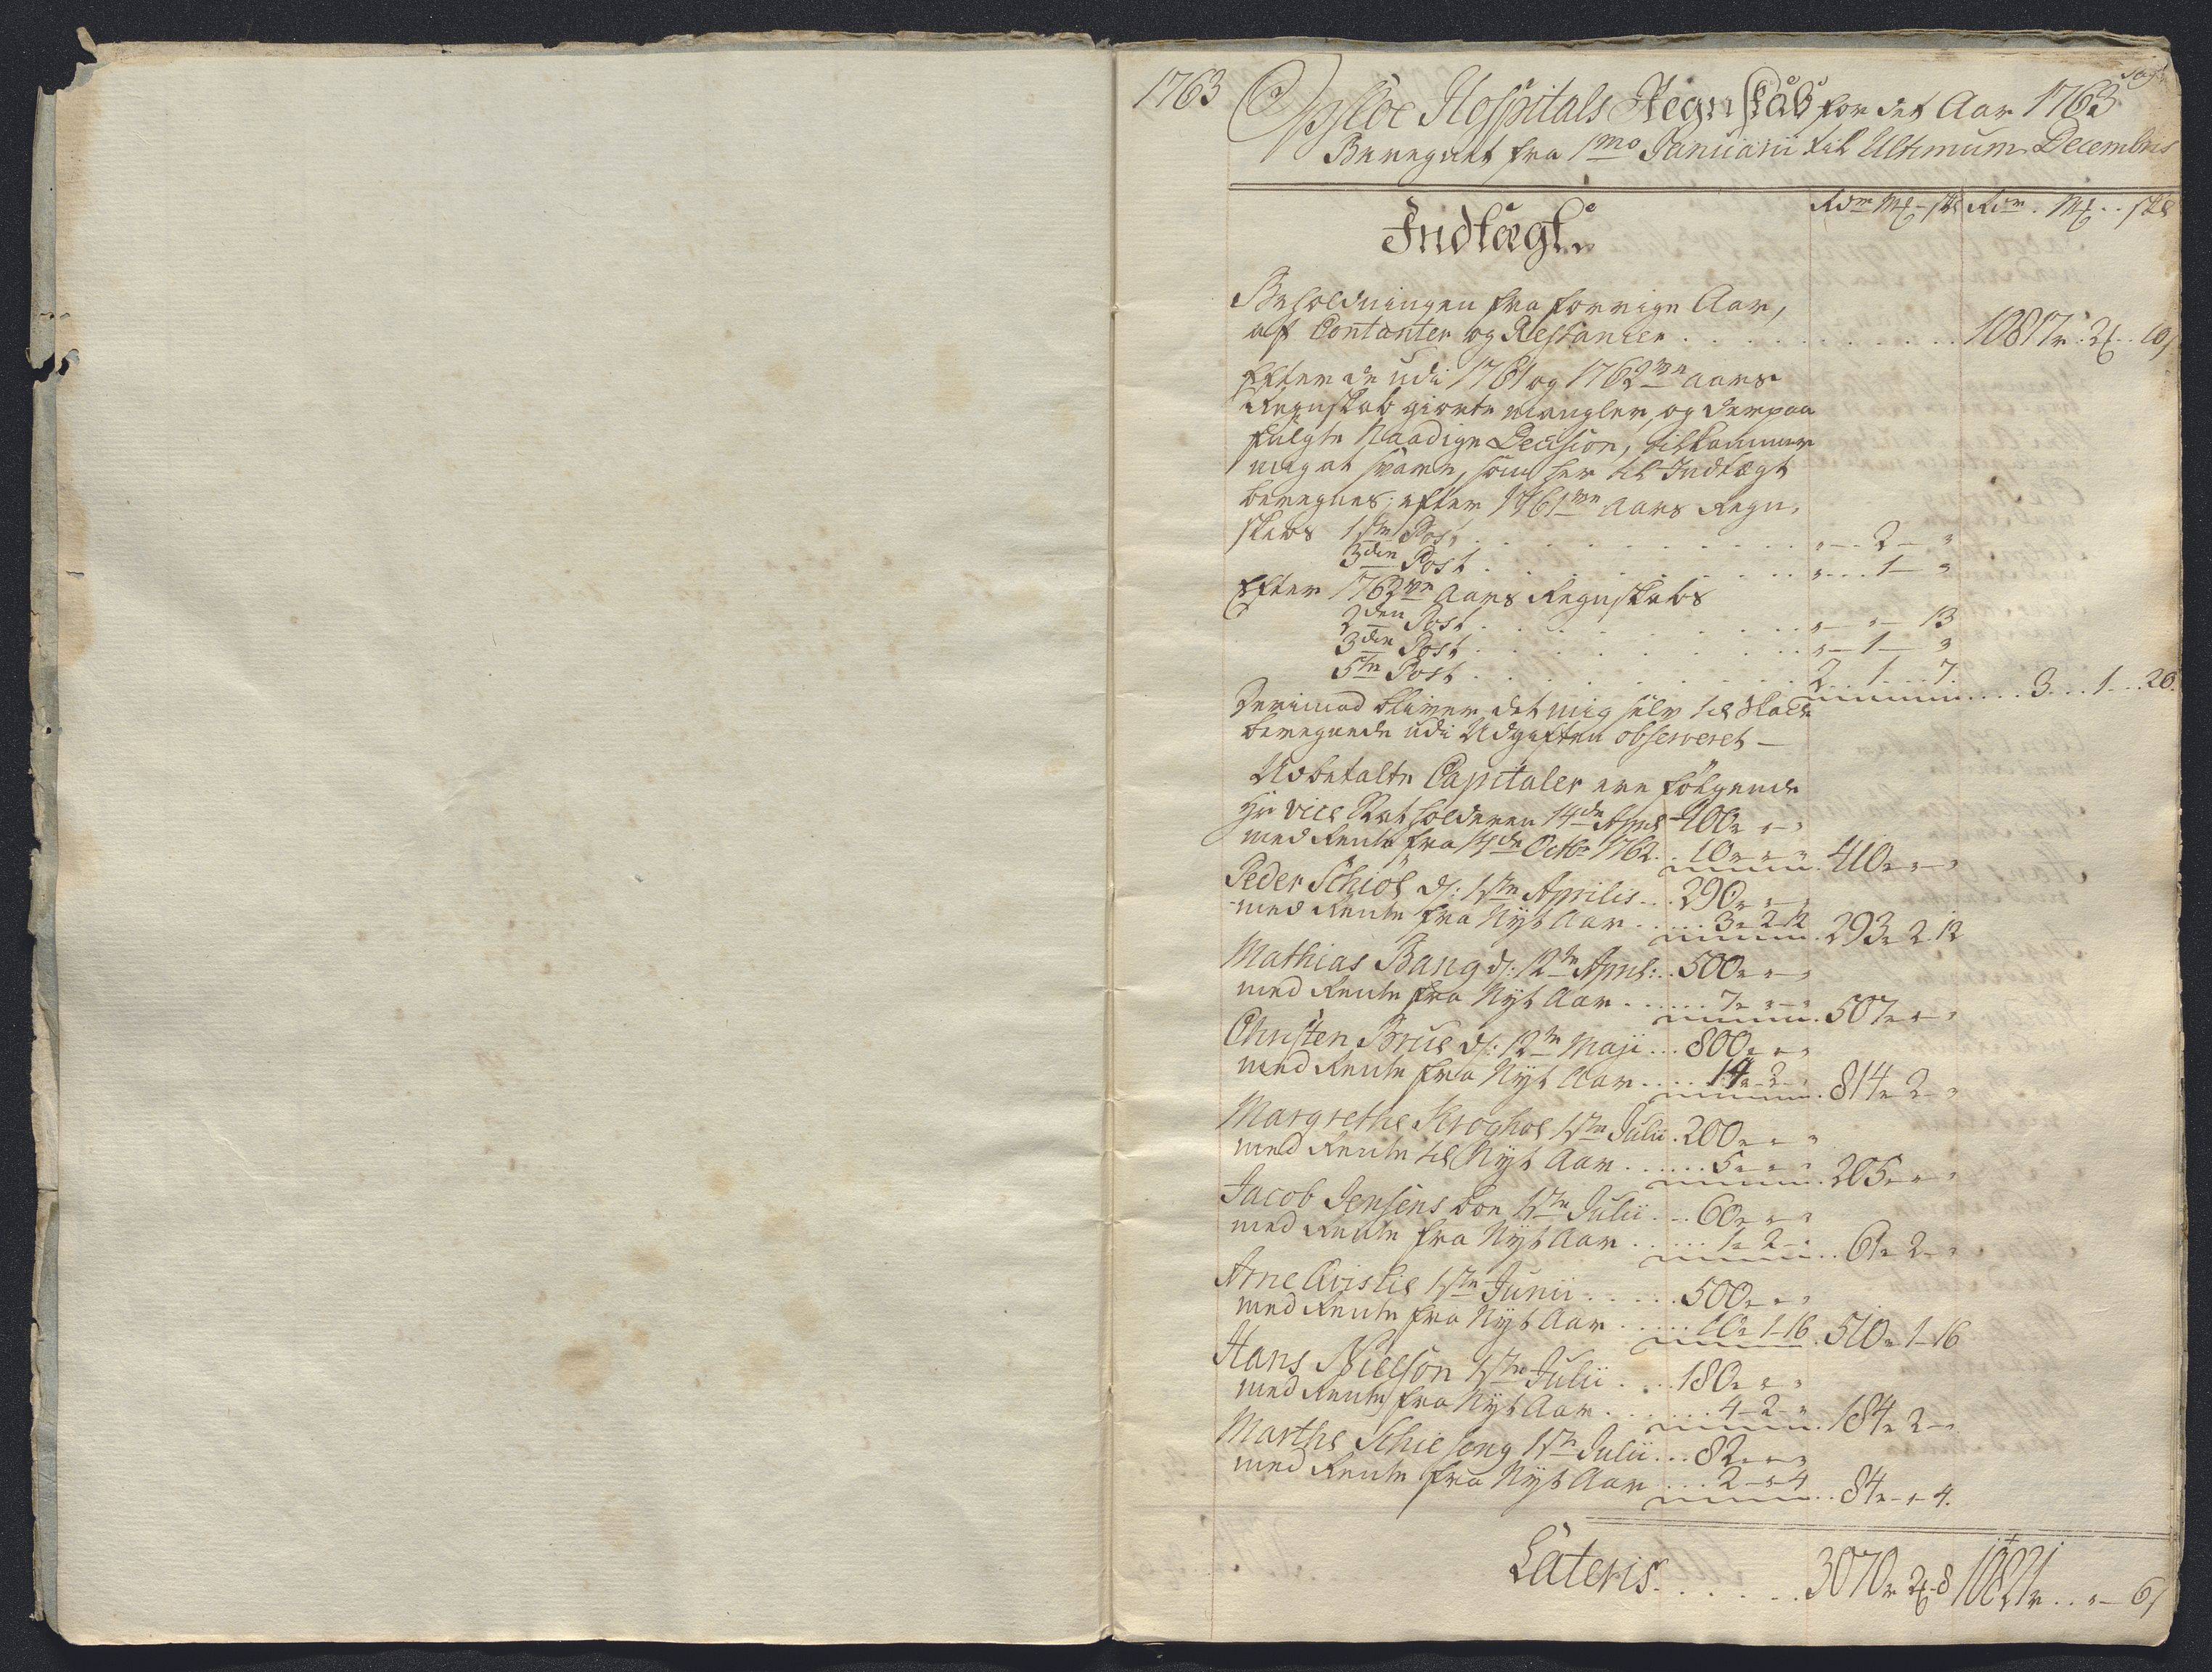 1763 Opsloe Hospitals Regnskab for det Aar 1763
Beregnet fra 1mo Januarii til Ultimum Decembris
Rdr Mk sk Rdr Mk sk
Indtægt.
Beholdningen fra forrige Aar,
af Contanter og Restancer . . . 10817r. 2. 10
Efter de udi 1761 og 1762de Aars
Regnskab giorte Mangler, og derpaa
fulgte Naadige Decision, tilkommer
mig at svare, som her til Indtægt
beregnes; efter 1761de Aars Regn-
skabs 1ste Post . . . „ - 2 - „
3die Post . . . „ - 1 - „
Efter 1762de Aars Regnskabs
2den Post . . . „ - „ - 13
3die Post . . . „ - 1 - „
5te Post . . . 2. 1. 7. . . . 3. . . 1. . 20.
Derimod bliver det mig selv til Skade
beregnede udi Udgiften observeret -
Udbetalte Capitaler ere følgende
Hr Vice Statholderen 14de April 400r „ - „
med Rente fra 14de Octbr 1762. . 10r „ - „ 410r „ - „
Peder Schiøl d: 1ste Aprilis . . 290r „ - „
med Rente fra Nyt Aar . . . 3r 2-12 . 293r 2. 12
Mathias Bang d: 12te April: . 500r „ - „
med Rente fra Nyt Aar . . . 7r „ - „ . 507r „ - „
Christen Brus d: 12te Maji . . . 800r „ - „
med Rente fra Nyt Aar . . . 14r 2 - „ . 814r 2 - „
Margrethe 1ste Julii . 200r „ - „
med Rente til Nyt Aar . . . 5r „ - „ . 205r „ - „
Jacob Jensens Boe 1ste Julii . . 60r „ - „
med Rente fra Nyt Aar . . . 1r 2 - „ . . 61r 2 - „
Arne 1ste Junii . . . 500r „ - „
med Rente fra Nyt Aar . . . 10r 1-16 . 510r 1-16
Hans Nielson 1ste Julii . . . 180r „ - „
med Rente fra Nyt Aar . . . 4-2-„ . 184r 2 - „
Marthe 1ste Julii . . . 82r „ - „
med Rente fra Nyt Aar . . . 2 - „ 4 . . 84r - „ - 4.
Lateris . . . 3070r 2 8 10821r . . „ - 6